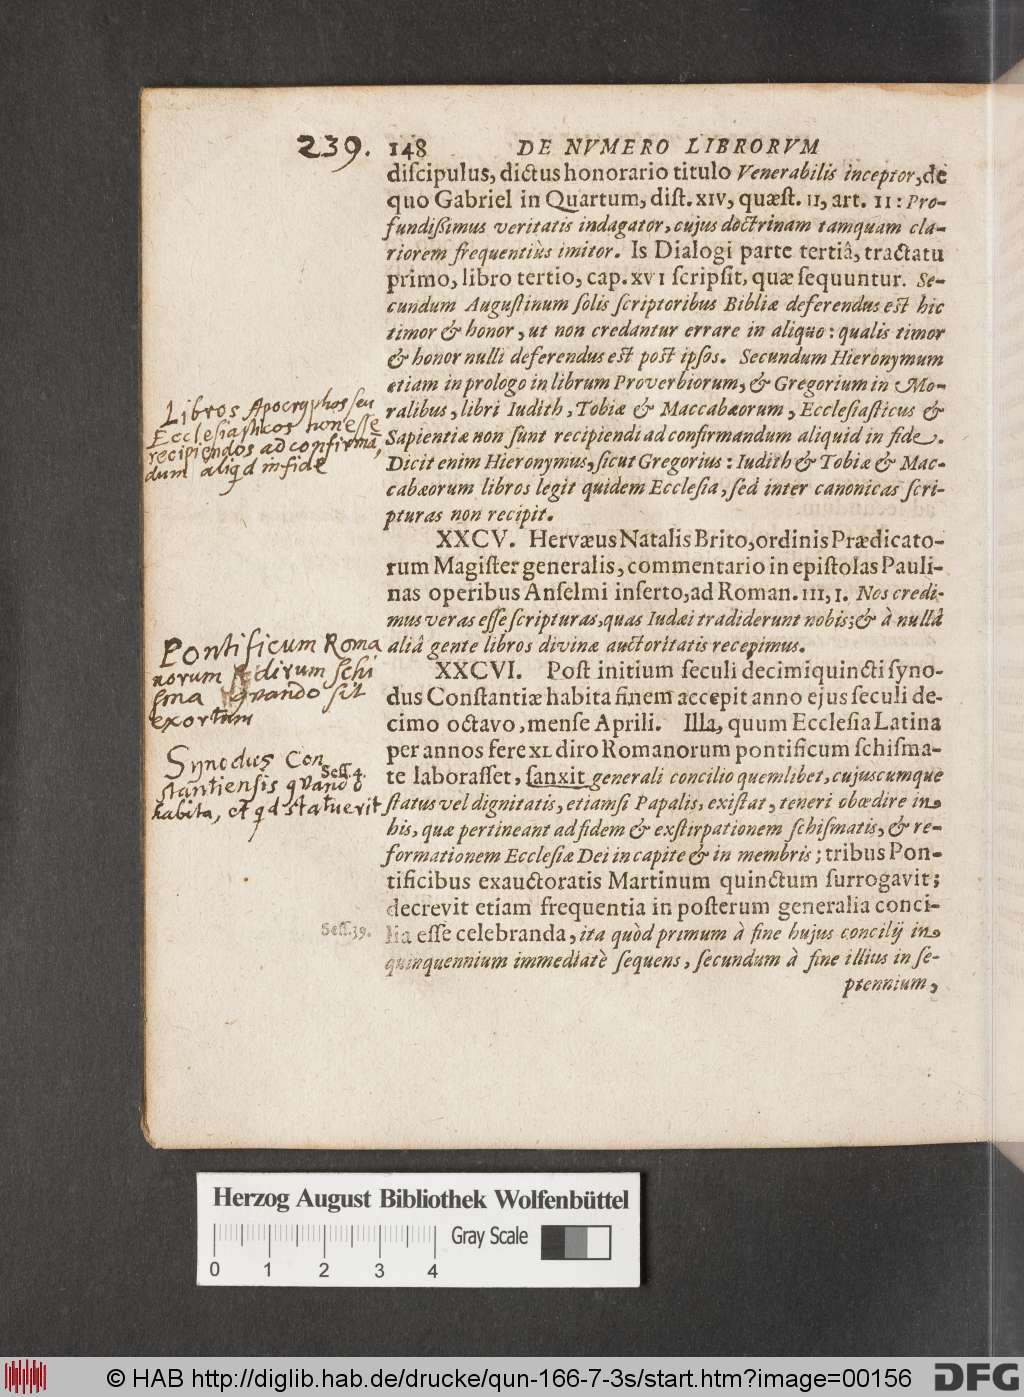 239. 148 DE NVMERO LIBRORVM
diſcipulus, dictus honorario titulo Venerabilis inceptor, de
quo Gabriel in Quartum, diſt. XIV, quæſt. II, art. II: Pro-
fundißimus veritatis indagator, cujus doctrinam tamquam cla-
riorem frequentiùs imitor. Is Dialogi parte tertiâ, tractatu
primo, libro tertio, cap. XVI ſcripſit, quæ ſequuntur. Se-
cundum Auguſtinum ſolis ſcriptoribus Bibliæ deferendus eſt hic
timor & honor, ut non credantur errare in aliquo: qualis timor
& honor nulli deferendus eſt poſt ipſos. Secundum Hieronymum
etiam in prologo in librum Proverbiorum, & Gregorium in Mo-
ralibus, libri Iudith, Tobiæ & Maccabæorum, Eccleſiaſticus &
Sapientiæ non ſunt recipiendi ad confirmandum aliquid in fide.
Dicit enim Hieronymus, ſicut Gregorius: Iudith & Tobiæ & Mac-
cabæorum libros legit quidem Eccleſia, ſed inter canonicas ſcri-
pturas non recipit.
Libros Apocryphos ſeu
Eccleſiaſticos non eſſe
recipiendos ad confirmā,
dum aliqd in fide
XXCV. Hervæus Natalis Brito, ordinis Prædicato-
rum Magiſter generalis, commentario in epiſtolas Pauli-
nas operibus Anſelmi inſerto, ad Roman. III, I. Nos credi-
mus veras eſſe ſcripturas, quas Iudæi tradiderunt nobis; & à nullâ
aliâ gente libros divinæ auctoritatis recepimus.
XXCVI. Poſt initium ſeculi decimiquincti ſyno-
dus Conſtantiæ habita finem accepit anno ejus ſeculi de-
cimo octavo, menſe Aprili. Illa, quum Eccleſia Latina
per annos fere XL diro Romanorum pontificum ſchiſma-
te laboraſſet, ſanxit generali concilio quemlibet, cujuscumque
ſtatus vel dignitatis, etiamſi Papalis, exiſtat, teneri obœdire in
his, quæ pertineant ad fidem & exſtirpationem ſchiſmatis, & re-
formationem Eccleſiæ Dei in capite & in membris; tribus Pon-
tificibus exauctoratis Martinum quinctum ſurrogavit;
decrevit etiam frequentia in poſterum generalia conci-
lia eſſe celebranda, ita quòd primum à fine hujus concilij in
quinquennium immediatè ſequens, ſecundum à fine illius in ſe-
ptennium,
Pontificum Roma
norum dirum ſchi
ſma quando ſit
exortum
Synodus Con
Seſſ. 4.
ſtantienſis quando
habita, et qd ſtatuerit
Seſſ. 39.
Herzog August Bibliothek Wolfenbüttel
Gray Scale
0 1 2 3 4
© HAB http://diglib.hab.de/drucke/qun-166-7-3s/start.htm?image=00156
DFG